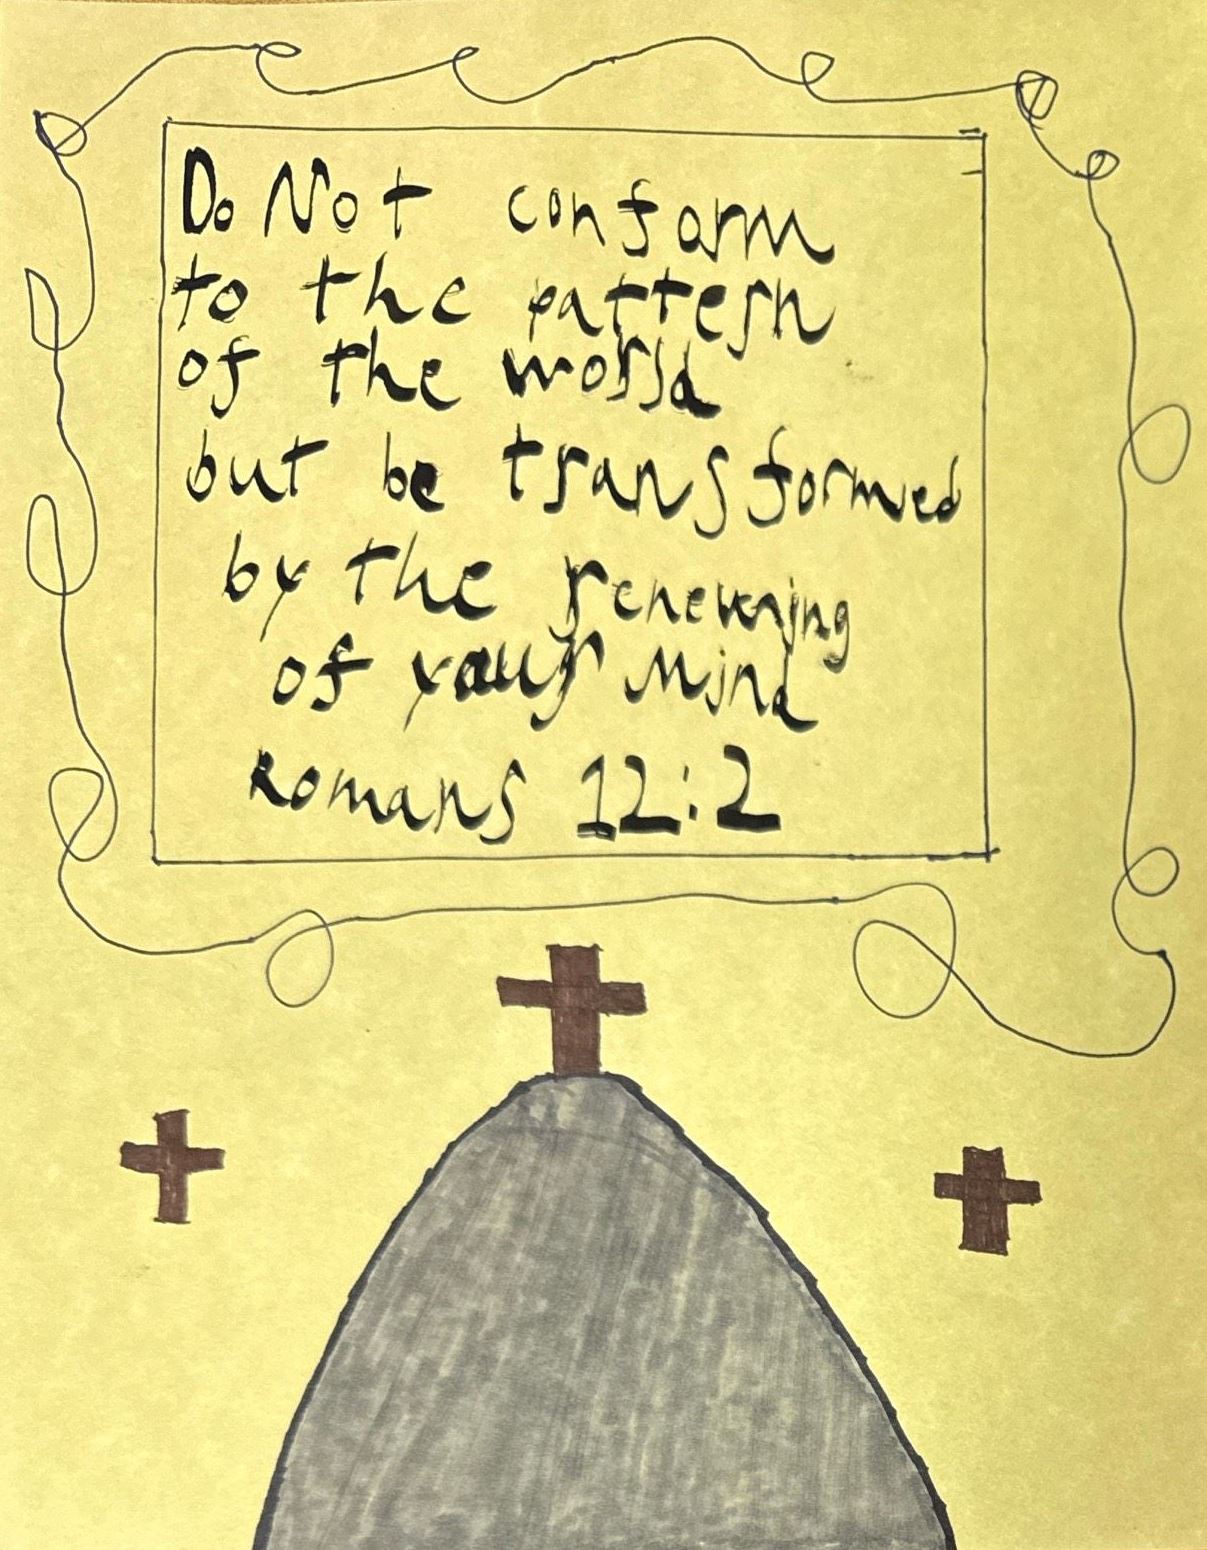 Do Not conform
to the pattern
of the world
but be transformed
by the renewning
of your Mind
Romans 12:2